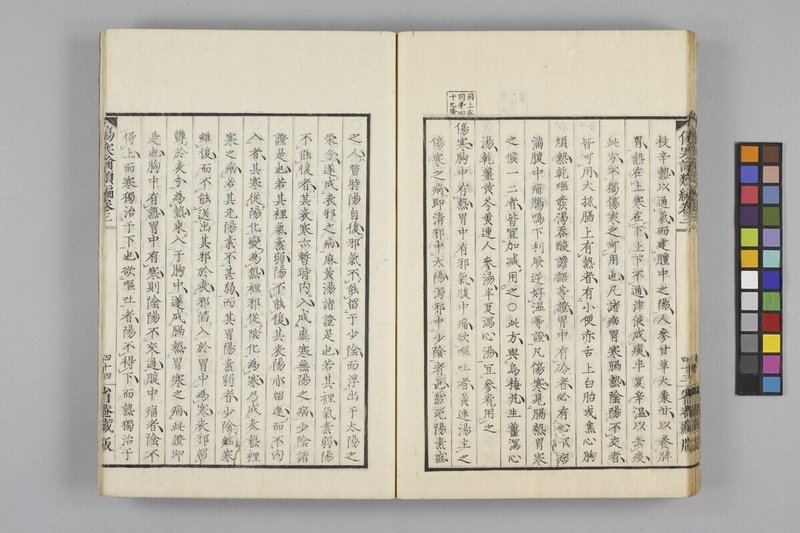 枝辛熱以通氣而建膻中之陽人參甘草大棗甘以養脾
胃熱在上寒在下上下不通津液成痰半夏辛温以去痰
此方不獨傷寒之可用也凡諸病胃寒膈熱陰陽不交者
皆可用大抵膈上有熱者有小便赤舌上白胎或焦心胸
煩熱乾嘔煩渴吞酸譫語等證胃中有冷者必有心下痞
滿腹中痛腸鳴下利厥逆好温等證凡傷寒見膈熱胃寒
之候一二者皆宜加減用之○此方與烏梅丸生薑瀉心
湯乾薑黄芩黄連人參湯半夏瀉心湯宜參看用之
傷寒胸中有熱胃中有邪氣腹中痛欲嘔吐者黄連湯主之
傷寒之病即清邪中太陽濁邪中少陰者也然元陽素盛
傷寒論類編卷三
之人暫時陽自復邪氣不能留于少陰而浮出于太陽之
榮分遂成表邪之病麻黄湯諸證是也若其裡氣素弱陽
不能復者其表寒亦暫時内入成虚寒無陽之病少陰諸
證是也若其裡氣素弱陽不能復其表陽亦留連而不内
入者其寒從陽化變為熱裡邪從陰化為寒乃成表熱裡
寒之病若其元陽素不甚弱而其胃陽素弱者少陰經寒
雖復而不能送出其邪於表邪陷入於胃中為寒表邪
鬱於表分為熱乘入于胸中遂成膈熱胃寒之病此證即
是也胸中有熱胃中有寒則陰陽不交通腹中痛者陰不
得上而寒獨治于下也欲嘔吐者陽不得下而熱獨治于
傷寒論類編卷三
四十四